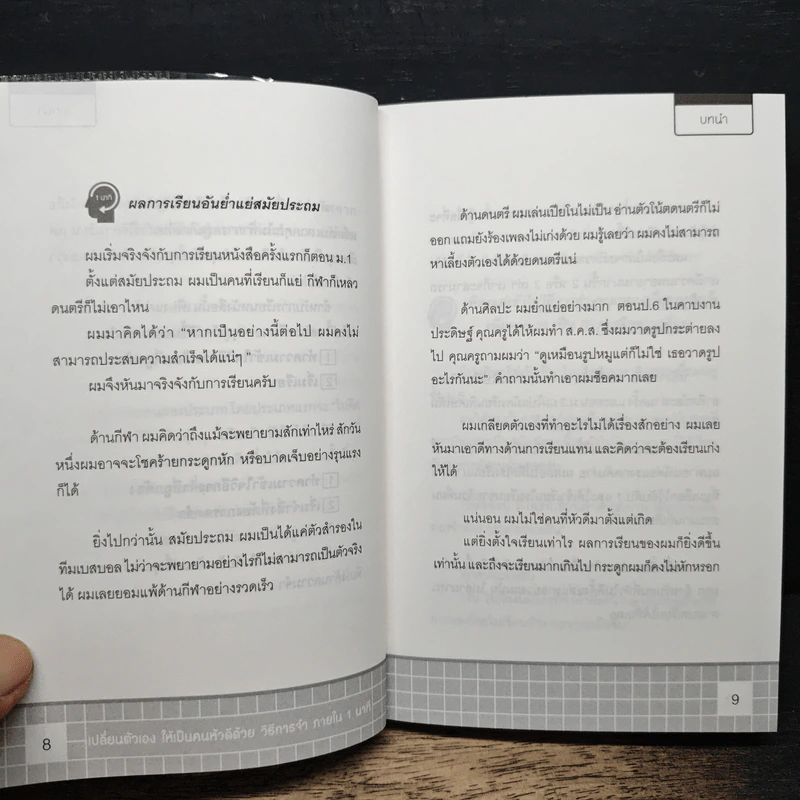 1 นาที
ผลการเรียนอันย่ำแย่สมัยประถม
ผมเริ่มจริงจังกับการเรียนหนังสือครั้งแรกก็ตอน ม.1
ตั้งแต่สมัยประถม ผมเป็นคนที่เรียนก็แย่ กีฬาก็เหลว
ดนตรีก็ไม่เอาไหน
ผมมาคิดได้ว่า “หากเป็นอย่างนี้ต่อไป ผมคงไม่
สามารถประสบความสำเร็จได้แน่ๆ ”
ผมจึงหันมาจริงจังกับการเรียนครับ
ด้านกีฬา ผมคิดว่าถึงแม้จะพยายามสักเท่าไหร่ สักวัน
หนึ่งผมอาจจะโชคร้ายกระดูกหัก หรือบาดเจ็บอย่างรุนแรง
ก็ได้
ยิ่งไปกว่านั้น สมัยประถม ผมเป็นได้แค่ตัวสำรองใน
ทีมเบสบอล ไม่ว่าจะพยายามอย่างไรก็ไม่สามารถเป็นตัวจริง
ได้ ผมเลยยอมแพ้ด้านกีฬาอย่างรวดเร็ว
8
เปลี่ยนตัวเอง ให้เป็นคนหัวดีด้วย วิธีการจำ ภายใน 1 นาที
บทนำ
ด้านดนตรี ผมเล่นเปียโนไม่เป็น อ่านตัวโน้ตดนตรีก็ไม่
ออก แถมยังร้องเพลงไม่เก่งด้วย ผมรู้เลยว่า ผมคงไม่สามารถ
หาเลี้ยงตัวเองได้ด้วยดนตรีแน่
ด้านศิลปะ ผมย่ำแย่อย่างมาก ตอนป.6 ในคาบงาน
ประดิษฐ์ คุณครูได้ให้ผมทำ ส.ค.ส. ซึ่งผมวาดรูปกระต่ายลง
ไป คุณครูถามผมว่า “ดูเหมือนรูปหมูแต่ก็ไม่ใช่ เธอวาดรูป
อะไรกันนะ” คำถามนั้นทำเอาผมช็อคมากเลย
ผมเกลียดตัวเองที่ทำอะไรไม่ได้เรื่องสักอย่าง ผมเลย
หันมาเอาดีทางด้านการเรียนแทน และคิดว่าจะต้องเรียนเก่ง
ให้ได้
แน่นอน ผมไม่ใช่คนที่หัวดีมาตั้งแต่เกิด
แต่ยิ่งตั้งใจเรียนเท่าไร ผลการเรียนของผมก็ยิ่งดีขึ้น
เท่านั้น และถึงจะเรียนมากเกินไป กระดูกผมก็คงไม่หักหรอก
9